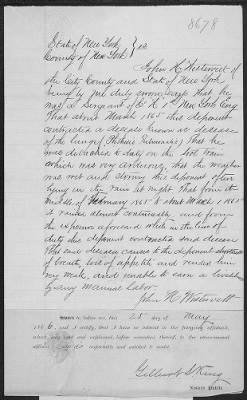 8678
State of New York
County of New York } ss
John H. Westervelt of
the City County and State of New York
being by me duly sworn says that he
was a Sergeant of Co. K 1st New York Eng
That about March 1865 this deponent
contracted a disease known as disease
of the lungs (Phthisis Pulmonalis) that he
was detailed to duty on the
which was very arduous, that the weather
was wet and stormy this deponent often
lying in the rain at night. That from the
middle of February 1865 to about March 1 1865
it rained almost continually and from
the exposure aforesaid which in the line of
duty this deponent contracted said disease
That said disease causes to the deponent shortness
of breath, loss of appetite and renders him
very weak, and unable to earn a livelihood
by any manual labor.
John H. Westervelt
Sworn to before me, this 25 day of May
1866, and I certify, that I have no interest in the foregoing affidavit,
which was read and explained before execution thereof, to the aforenamed
affiant, whom I do know respectable and entitled to credit.
Gilbert S. King
Notary Public